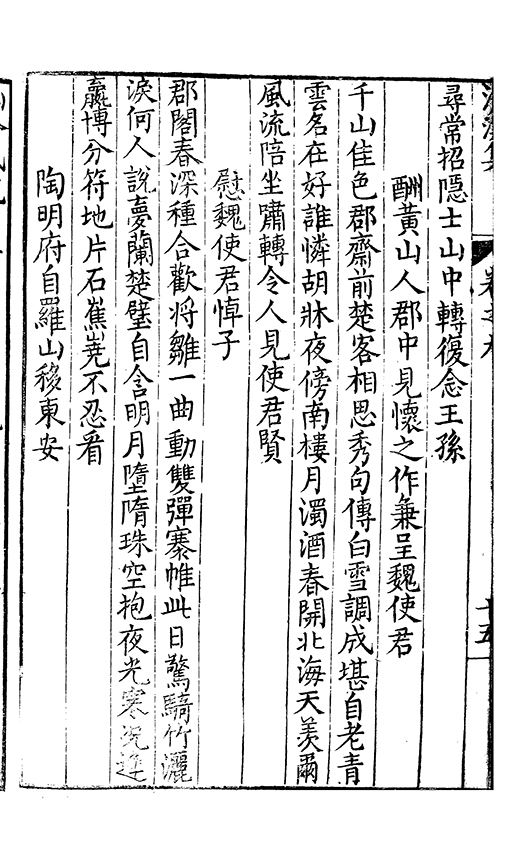 卷之九
十五
尋常招隱士山中轉復念王孫
酬黃山人郡中見懷之作兼呈魏使君
千山佳色郡齋前楚客相思秀句傳白雪調成堪自老青
雲名在好誰憐胡牀夜傍南樓月濁酒春開北海天羨爾
風流陪坐嘯轉令人見使君賢
慰魏使君悼子
郡閣春深種合歡將雛一曲動雙彈褰帷此日驚騎竹灑
淚何人說夢蘭楚璧自含明月墮隋珠空抱夜光寒況逢
嬴博分符地片石嶣嶤不忍看
陶明府自羅山移東安